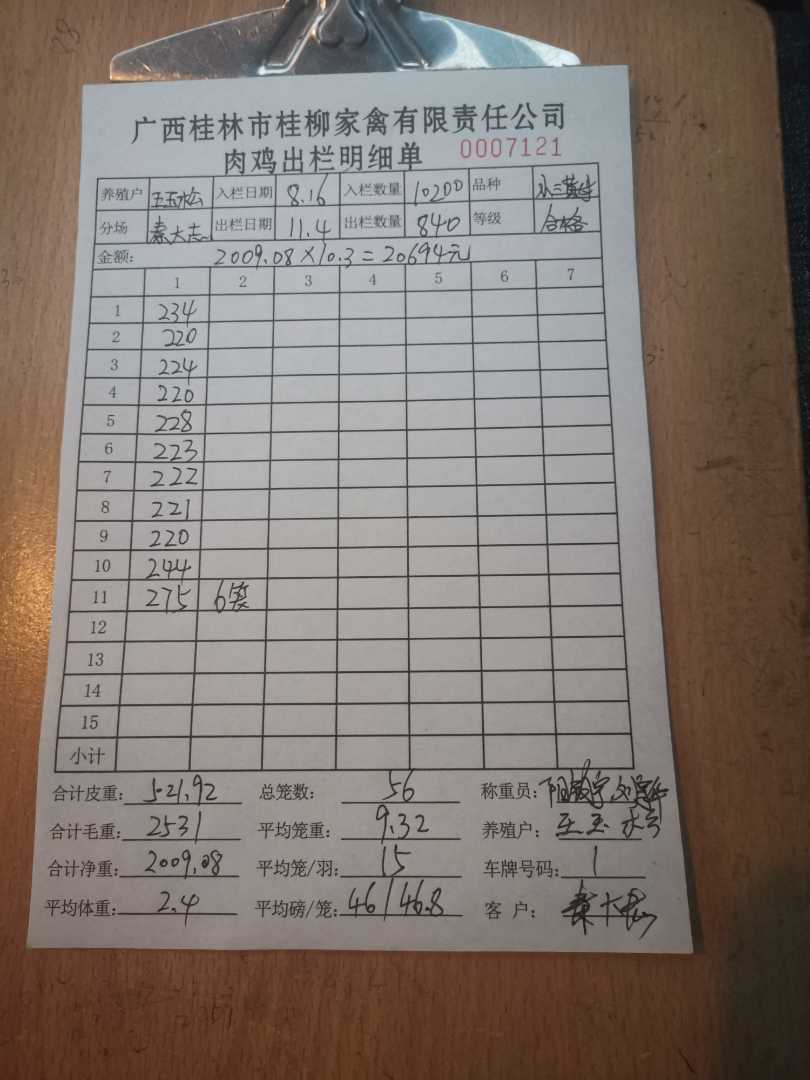 广西桂林市桂柳家禽有限责任公司
肉鸡出栏明细单 0007121
养殖户 王玉松 入栏日期 8.16 入栏数量 10200 品种
分场 秦大志 出栏日期 11.4 出栏数量 840 等级 合格
金额: 2009.08×10.3=20694元
1 2 3 4 5 6 7
1 234
2 220
3 224
4 220
5 228
6 223
7 222
8 221
9 220
10 244
11 275 6笼
12
13
14
15
小计
合计皮重: 521.92 总笼数: 56 称重员:
合计毛重: 2531 平均笼重: 9.32 养殖户: 王玉松
合计净重: 2009.08 平均笼/羽: 15 车牌号码: 1
平均体重: 2.4 平均磅/笼: 46/46.8 客户: 秦大志